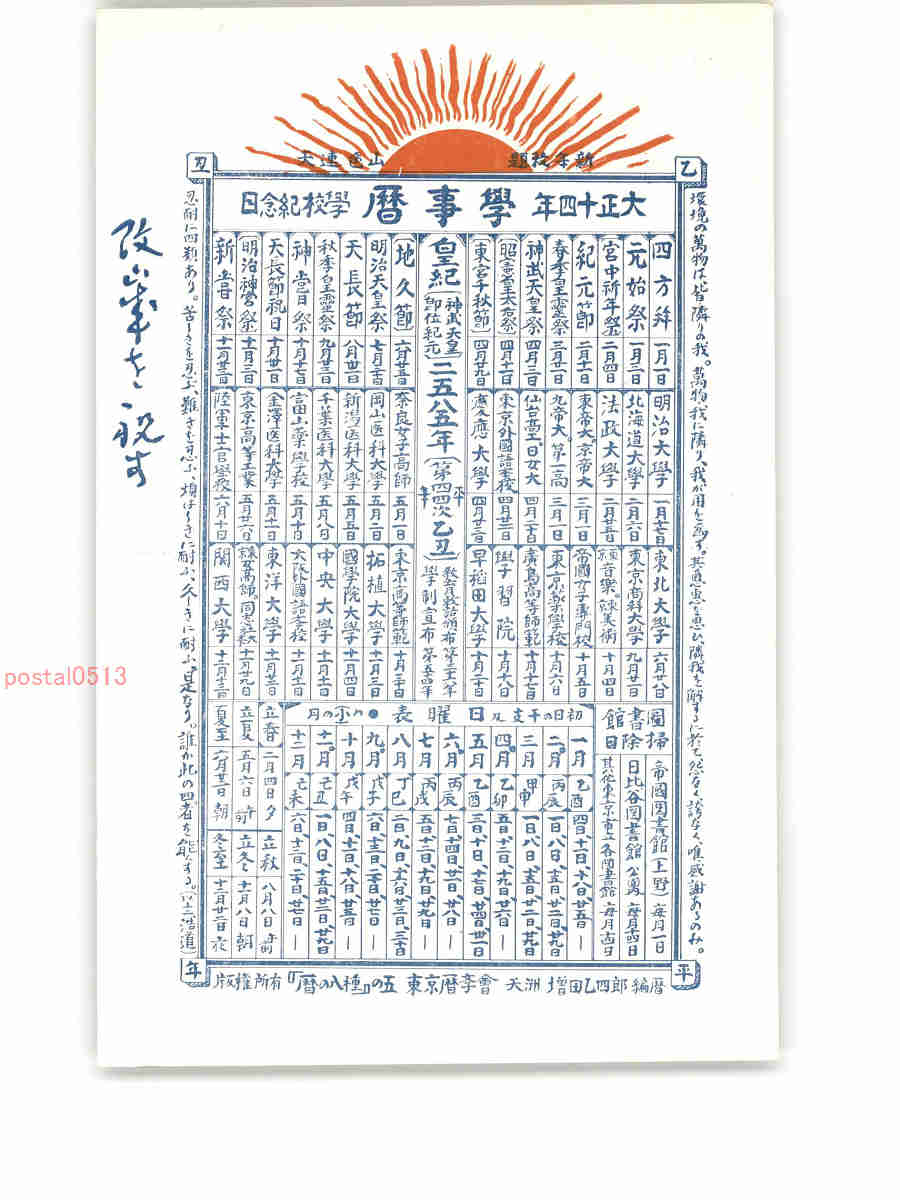 新年發題
山色連天
乙
丑
平
年
大正十四年 學事曆 學校紀念日
環境の萬物は皆隣りの我。萬物我に隣り、我が用を爲す。
四方拜 一月一日
元始祭 一月三日
宮中祈年祭 二月四日
紀元節 二月十一日
春季皇靈祭 三月廿一日
神武天皇祭 四月三日
昭憲皇太后祭 四月十一日
東宮千秋節 四月廿九日
皇紀(神武天皇即位紀元)二五八五年(第四四次乙丑)平年
教育勅語頒布 第三十六年
學制宣布 第五十四年
地久節 六月廿五日
明治天皇祭 七月三十日
天長節 八月卅一日
秋季皇靈祭 九月廿三日
神嘗祭 十月十七日
天長節祝日 十月卅一日
(明治神宮祭) 十一月三日
新嘗祭 十一月廿三日
明治大學 一月十七日
北海道大學 二月六日
法政大學 二月廿五日
東帝大。京帝大 三月一日
九帝大。第一高 三月一日
仙台高工。日女大 四月二十日
東京外國語學校 四月廿三日
慶應大學 四月廿三日
奈良女子高師 五月一日
岡山医科大學 五月二日
新潟医科大學 五月五日
千葉医科大學 五月八日
富山藥學校 五月十日
金澤医科大學 五月十一日
東京高等工業 五月廿六日
陸軍士官學校 六月十日
東北大學 六月廿八日
東京商科大學 九月廿一日
東京音樂。東美術 十月四日
帝國女子專門校 十月五日
東京藥學校 十月六日
廣島高等師範 十月十七日
學習院 十月十八日
早稻田大學 十月二十日
東京高等師範 十月三十日
拓植大學 十一月三日
國學院大學 十一月四日
中央大學 十一月十一日
大阪外國語學校 十一月十一日
東洋大學 十一月廿三日
東女高師。同志社大 十一月廿九日
関西大學 十二月十三日
圖書館掃除日
帝國圖書館(上野) 每月一日
日比谷圖書館 公園 每月十四日
其他東京市立各圖書館 每月十五日
初日の干支及日曜表
一月 乙酉 四日、十一日、十八日、廿五日 —
二月 丙辰 一日、八日、十五日、廿二日
三月 甲申 一日、八日、十五日、廿二日、廿九日
四月 乙卯 五日、十二日、十九日、廿六日 —
五月 乙酉 三日、十日、十七日、廿四日、卅一日
六月 丙辰 七日、十四日、廿一日、廿八日 —
七月 丙戌 五日、十二日、十九日、廿六日 —
八月 丁巳 二日、九日、十六日、廿三日、三十日
九月 戊子 六日、十三日、二十日、廿七日 —
十月 戊午 四日、十一日、十八日、廿五日 —
十一月 己丑 一日、八日、十五日、廿二日、廿九日
十二月 己未 六日、十三日、二十日、廿七日 —
立春 二月四日 夕
立夏 五月六日 午前
夏至 六月廿二日 朝
立秋 八月八日 午前
立冬 十一月八日 朝
冬至 十二月廿二日 夜
忍耐に四類あり。苦しきを忍ぶ、難きを忍ぶ、煩はしきに耐ふ、久しきに耐ふ、是なり。誰か此の四者を能くする。
曆編 郎四乙田增 洲天 會李曆京東 五の『種八の曆』 有所權版
改歲を祝す
postal0513